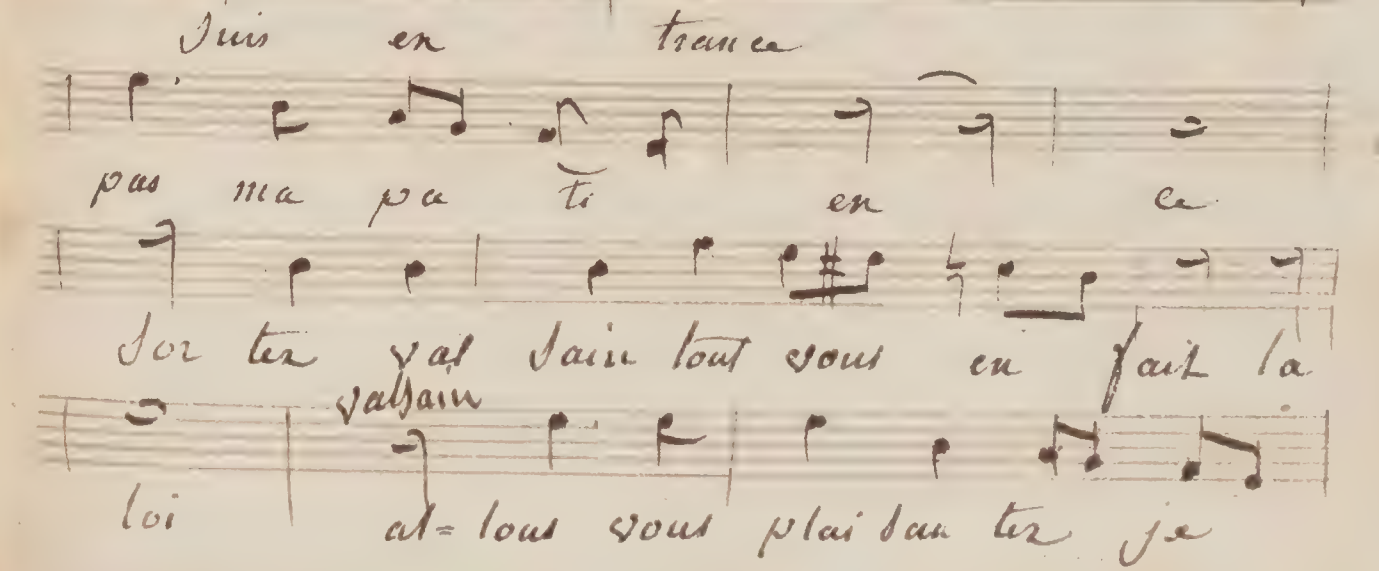 suis en trance
pas ma pa ti en ce
sor tez val sain tout vous en fait la
valsain
loi al=lons vous plai san tez je